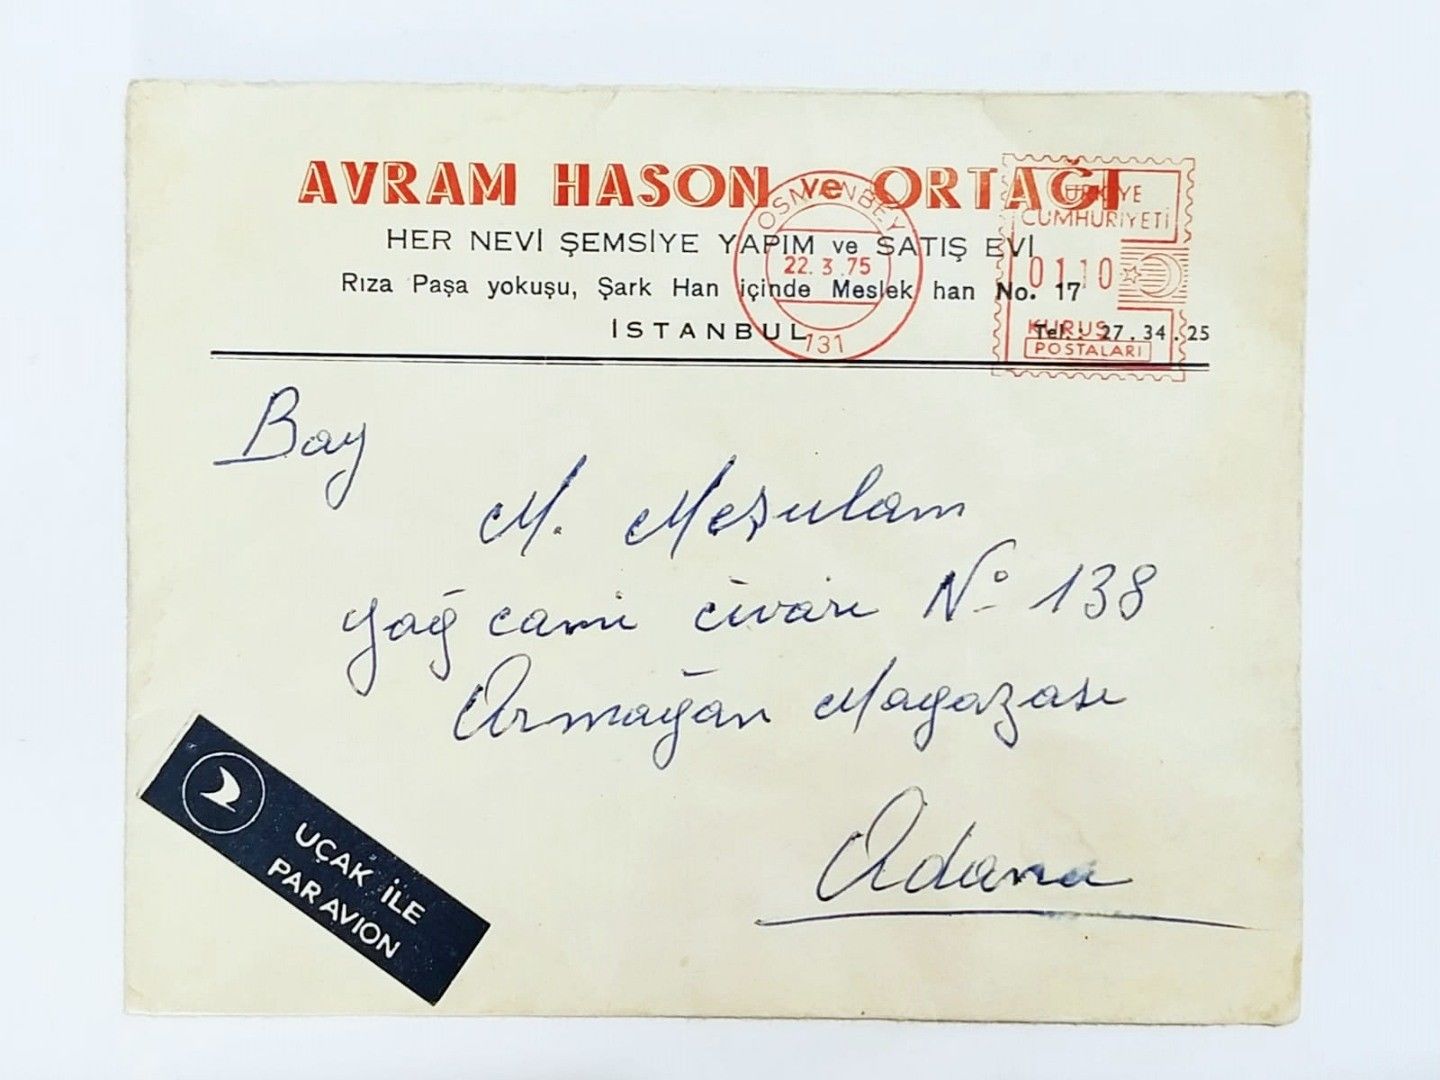 AVRAM HASON ve ORTAĞI
HER NEVİ ŞEMSİYE YAPIM ve SATIŞ EVİ
Rıza Paşa yokuşu, Şark Han içinde Meslek han No. 17
İSTANBUL
Tel.: 27.34.25
OSMANBEY
22.3.75
131
TÜRKİYE
CUMHURİYETİ
0110
KURUŞ
POSTALARI
Bay
M. Mezulam
Yağ cami civarı No 138
Armağan Mağazası
Adana
UÇAK İLE
PAR AVION